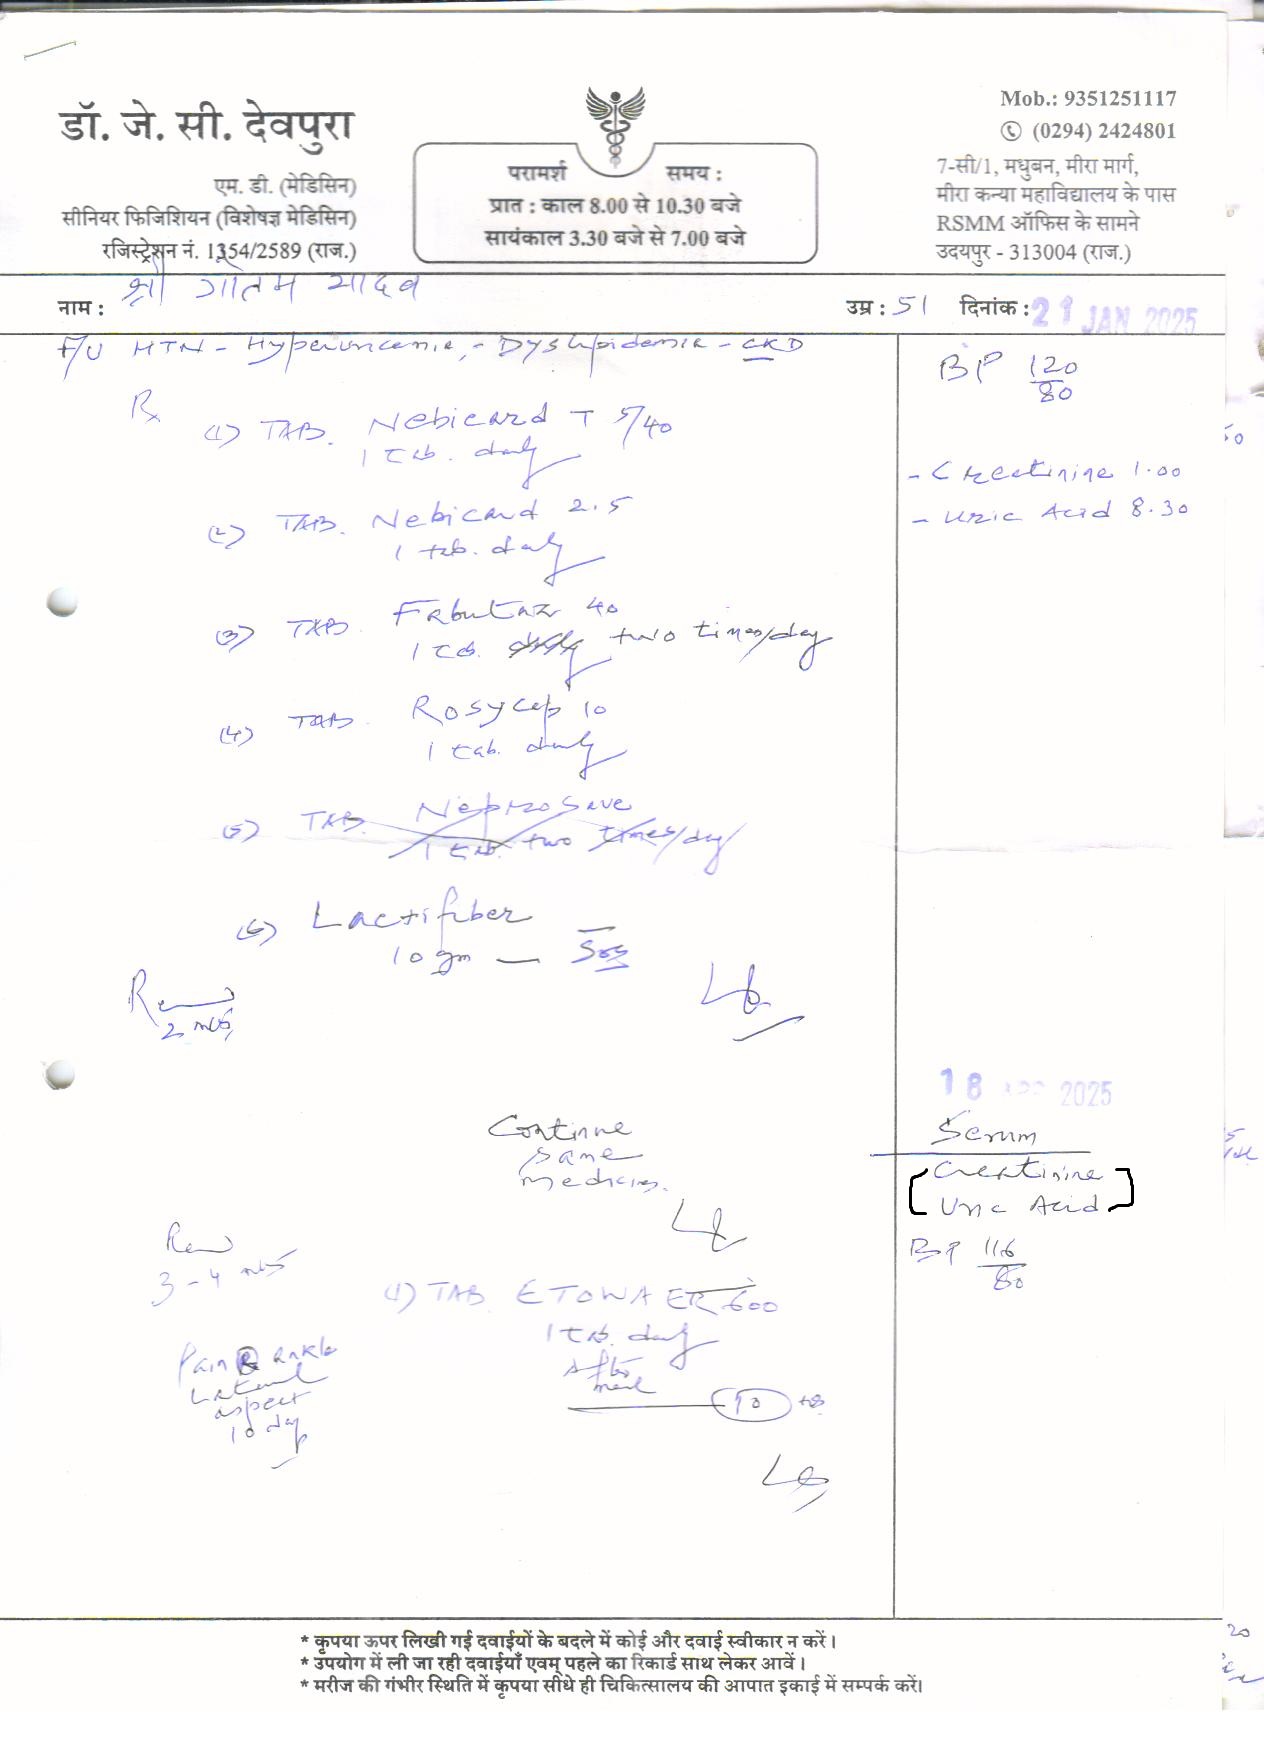 डॉ. जे. सी. देवपुरा
एम. डी. (मेडिसिन)
सीनियर फिजिशियन (विशेषज्ञ मेडिसिन)
रजिस्ट्रेशन नं. 1354/2589 (राज.)
परामर्श समय :
प्रात : काल 8.00 से 10.30 बजे
सायंकाल 3.30 बजे से 7.00 बजे
Mob.: 9351251117
(0294) 2424801
7-सी/1, मधुबन, मीरा मार्ग,
मीरा कन्या महाविद्यालय के पास
RSMM ऑफिस के सामने
उदयपुर - 313004 (राज.)
नाम : श्री गौतम यादव उम्र : 51 दिनांक : 21 JAN 2025
F/U HTN - Hyperuricemia, - Dyslipidemia - CKD
BP 120/80
Rx
(1) TAB. Nebicard T 5/40
1 tab. daily
- Creatinine 1.00
- Uric Acid 8.30
(2) TAB. Nebicard 2.5
1 tab. daily
(3) TAB Febutaz 40
1 tab. two times/day
(4) TAB. Rosycap 10
1 tab. daily
(5) TAB. Nephrosave
1 tab. two times/day
(6) Lactifiber
10 gm — SOS
Rev
2 mts
18 APR 2025
Continue
same
medicines.
Serum
[Creatinine
Uric Acid]
BP 116/80
Rev
3-4 mts
(1) TAB ETOWA ER 600
1 tab. daily
After
meal
10 tab
Pain R ankle
Lateral
aspect
10 day
* कृपया ऊपर लिखी गई दवाईयों के बदले में कोई और दवाई स्वीकार न करें।
* उपयोग में ली जा रही दवाईयाँ एवम् पहले का रिकार्ड साथ लेकर आवें।
* मरीज की गंभीर स्थिति में कृपया सीधे ही चिकित्सालय की आपात इकाई में सम्पर्क करें।